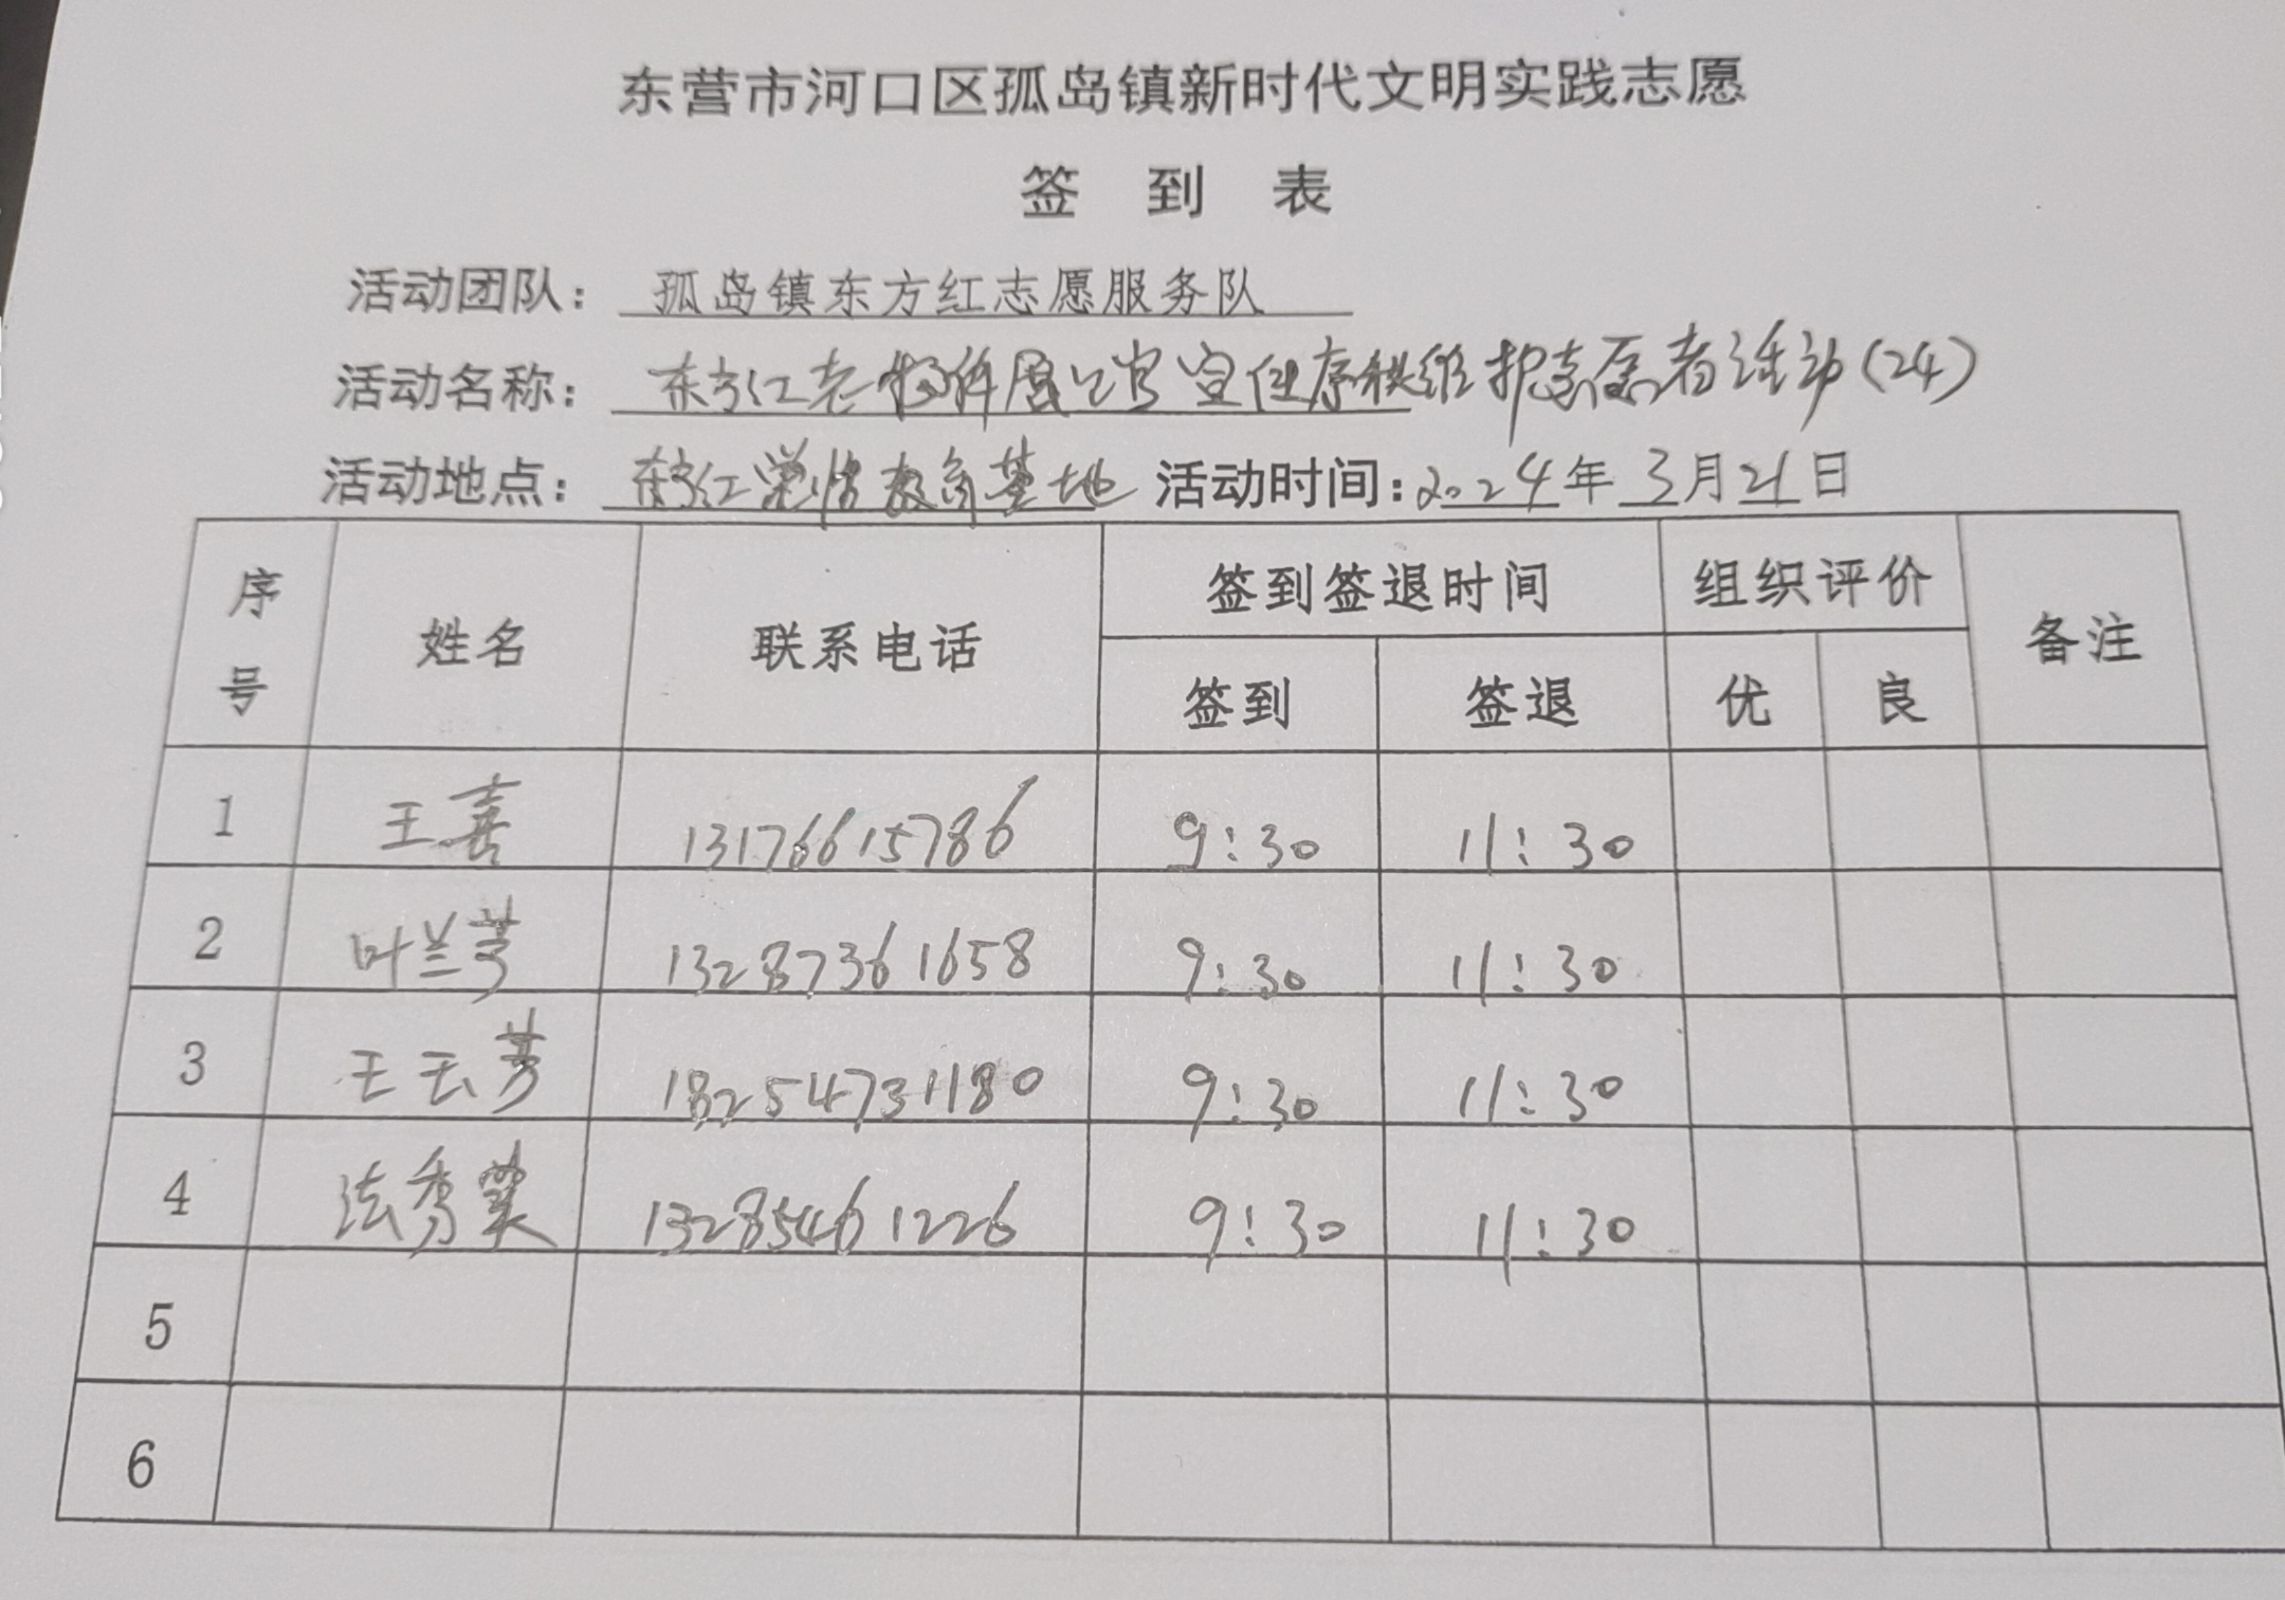 东营市河口区孤岛镇新时代文明实践志愿
签 到 表
活动团队：孤岛镇东方红志愿服务队
活动名称：东方红老物件展览馆宣传序秩维护志愿者活动(24)
活动地点：东方红党性教育基地 活动时间：2024年3月21日
序号 姓名 联系电话 签到签退时间 组织评价 备注
签到 签退 优 良
1 王喜 13176615786 9:30 11:30
2 叶兰芳 13287361658 9:30 11:30
3 王云芳 18254731180 9:30 11:30
4 法秀 13285461226 9:30 11:30
5
6